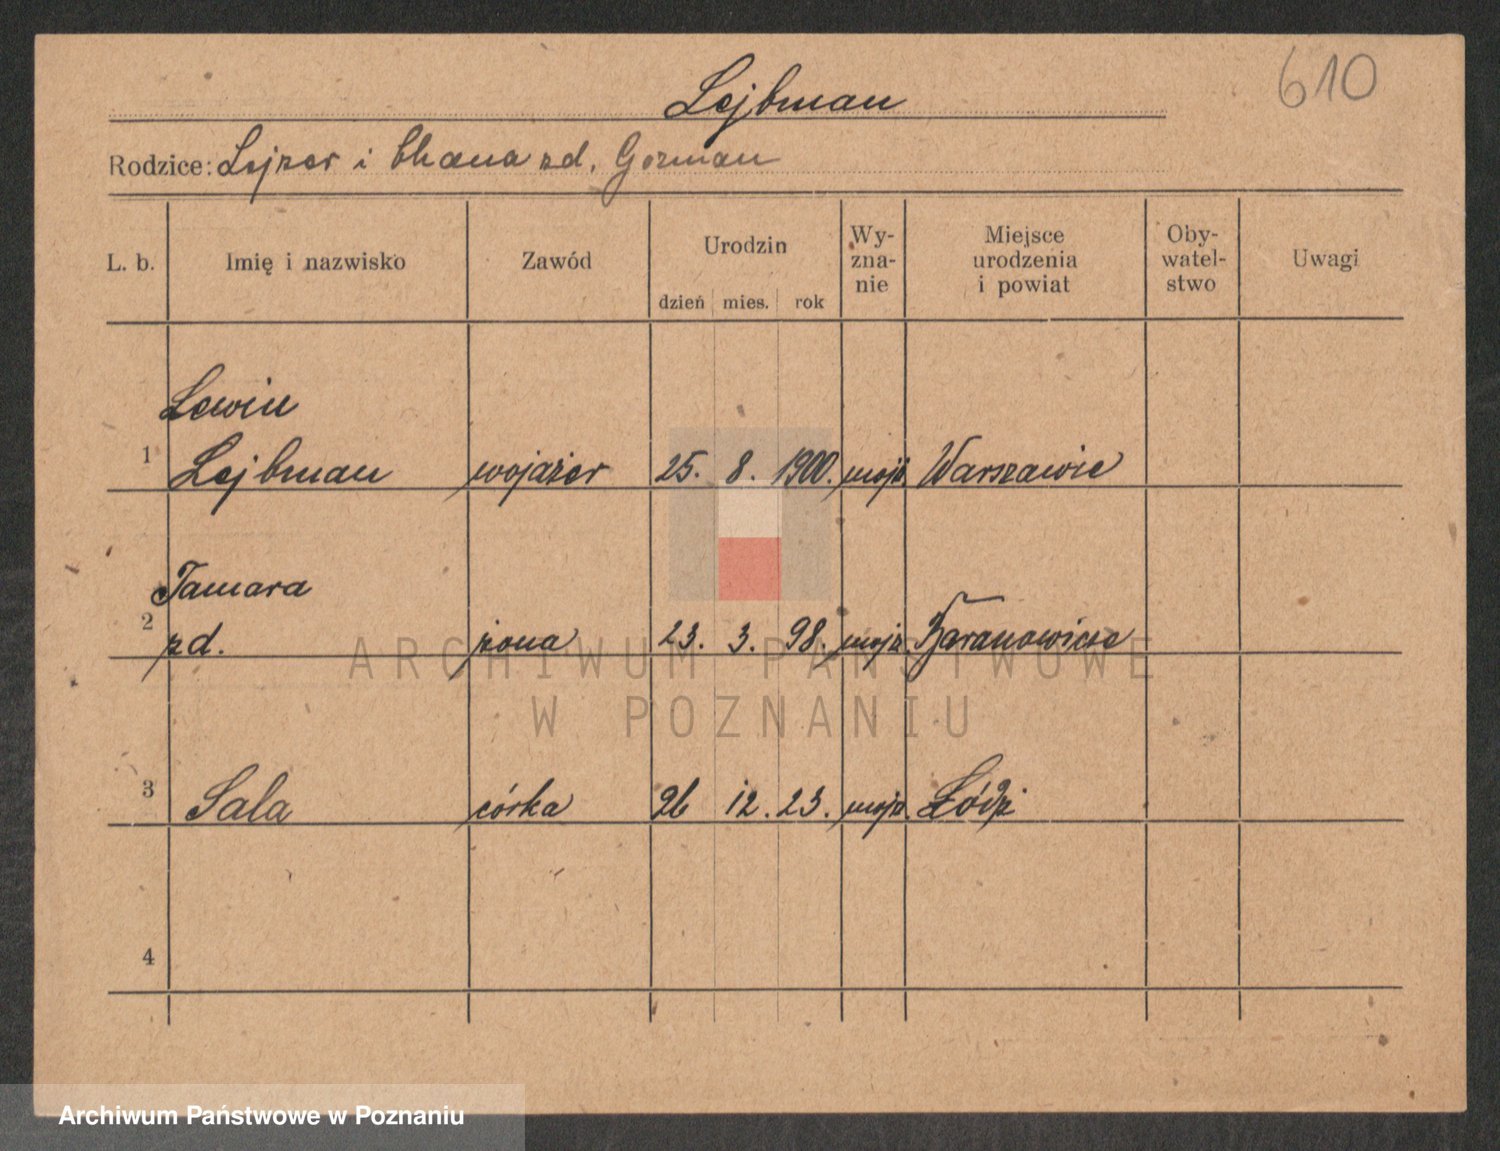 610
Lejbman
Rodzice: Lejzer i Chana zd. Gorman
L. b. Imię i nazwisko Zawód Urodzin dzień mies. rok Wy-zna-nie Miejsce urodzenia i powiat Oby-watel-stwo Uwagi
Lewin
1 Lejbman wojażer 25. 8. 1900. mojż. Warszawie
Tamara
2 zd. żona 23. 3. 98. mojż. Baranowicze
3 Sala córka 26 12. 23. mojż. Łódź
4
ARCHIWUM PAŃSTWOWE
W POZNANIU
Archiwum Państwowe w Poznaniu